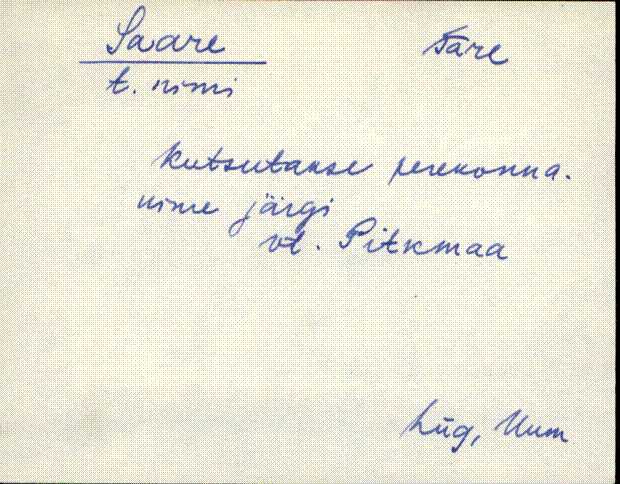 Saare
t. nimi
kutsutakse perekonna-
nime järgi
vt. Pitkmaa
Lüg, Uum